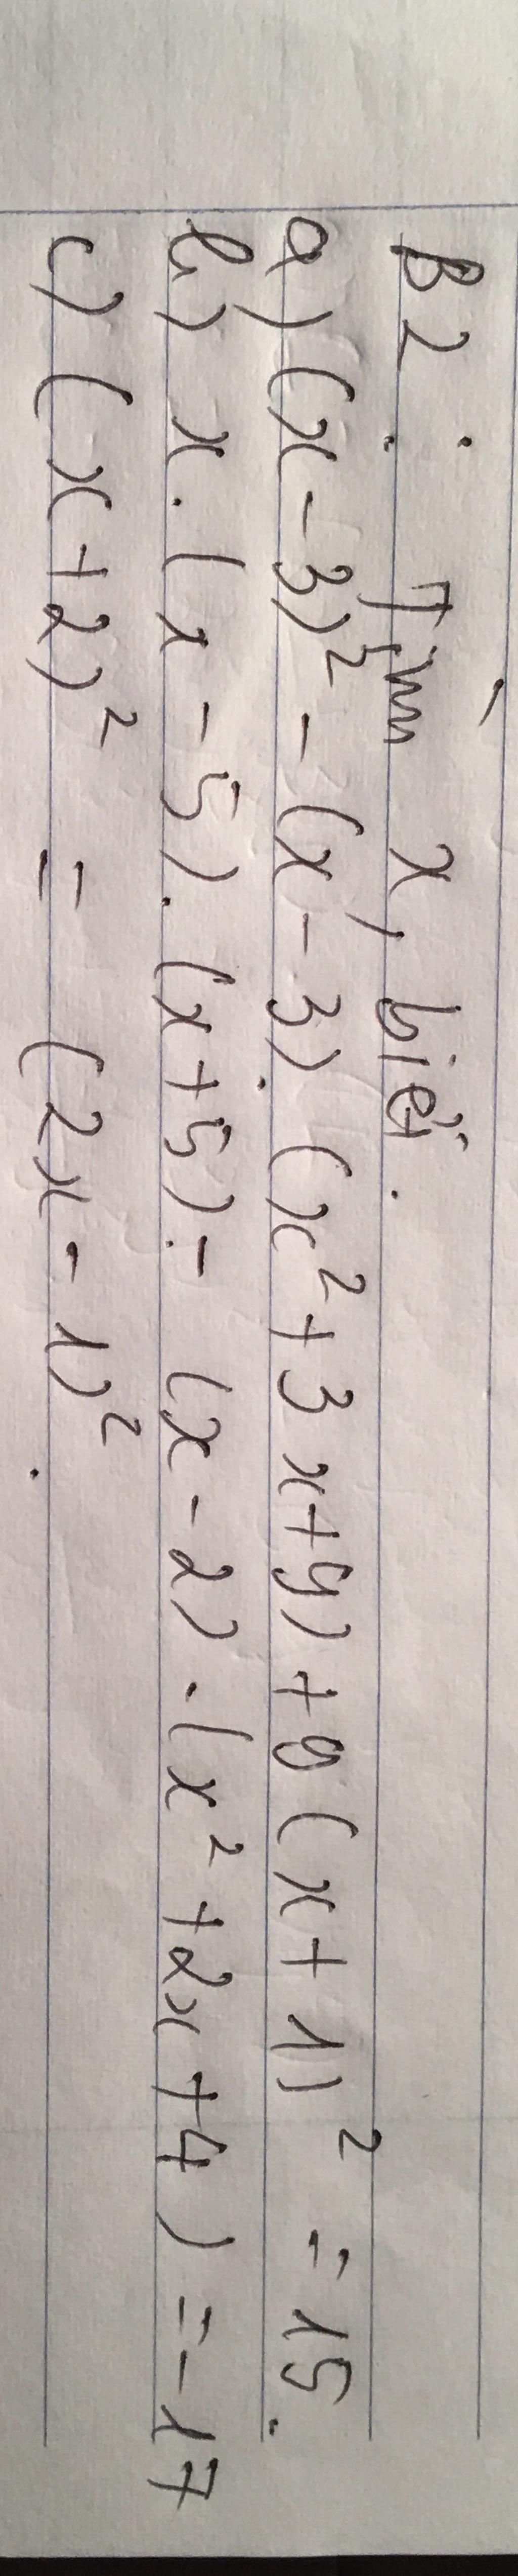 B2: Tìm x, biết.
a) (x-3)² - (x-3) (x²+3x+9) + 9(x+1)² = 15.
b) x.(x-5).(x+5)- (x-2).(x²+2x+4) =-17
c) (x+2)² = (2x-1)².